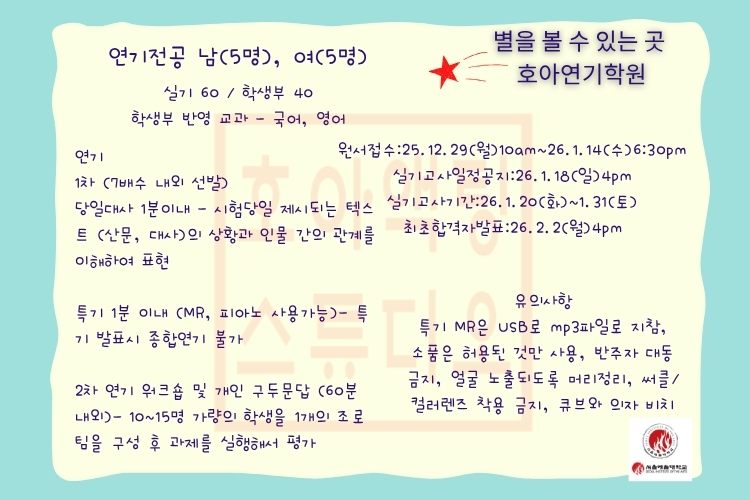 별을 볼 수 있는 곳
호아연기학원
연기전공 남(5명), 여(5명)
실기 60 / 학생부 40
학생부 반영 교과 - 국어, 영어
연기
1차 (7배수 내외 선발)
당일대사 1분이내 - 시험당일 제시되는 텍스
트 (산문, 대사)의 상황과 인물 간의 관계를
이해하여 표현
특기 1분 이내 (MR, 피아노 사용가능)- 특
기 발표시 종합연기 불가
2차 연기 워크숍 및 개인 구두문답 (60분
내외)- 10~15명 가량의 학생을 1개의 조로
팀을 구성 후 과제를 실행해서 평가
원서접수:25.12.29(월)10am~26.1.14(수)6:30pm
실기고사일정공지:26.1.18(일)4pm
실기고사기간:26.1.20(화)~1.31(토)
최초합격자발표:26.2.2(월)4pm
유의사항
특기 MR은 USB로 mp3파일로 지참,
소품은 허용된 것만 사용, 반주자 대동
금지, 얼굴 노출되도록 머리정리, 써클/
컬러렌즈 착용 금지, 큐브와 의자 비치
호아액팅
스튜디오
서울예술대학교
SEOUL INSTITUTE OF THE ARTS